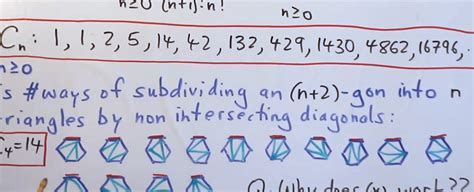 n≥0 (n+1)!n! n≥0
Cₙ: 1, 1, 2, 5, 14, 42, 132, 429, 1430, 4862, 16796,
n≥0
s #ways of subdividing an (n+2)-gon into n
riangles by non intersecting diagonals:
C₄=14
Q. Why does (x) work??